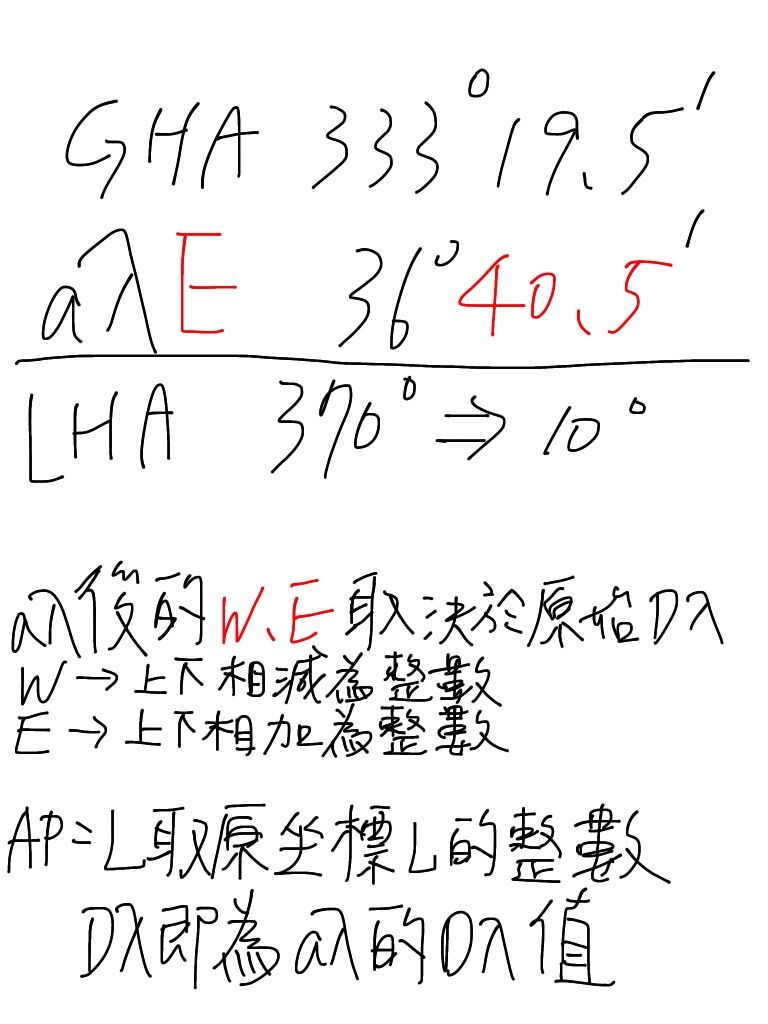 GHA 333°19.5'
aλE 36°40.5'
LHA 370° ⇒ 10°
aλ後的W、E取決於原始Dλ
W→上下相減為整數
E→上下相加為整數
AP=L取原坐標L的整數
Dλ即為aλ的Dλ值